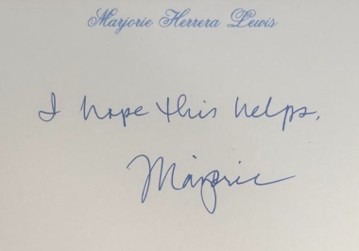 Marjorie Herrera Lewis
I hope this helps.
Marjorie